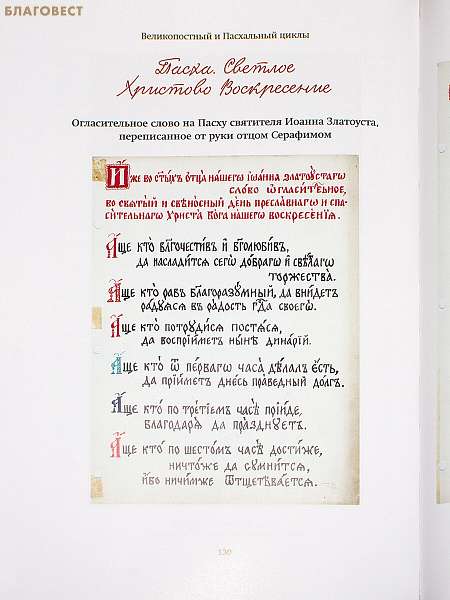 БЛАГОВЕСТ
Великопостный и Пасхальный циклы
Пасха. Светлое
Христово Воскресение
Огласительное слово на Пасху святителя Иоанна Златоуста,
переписанное от руки отцом Серафимом
И҆́же во ст҃ы́хъ ѻ҆тца̀ на́шегѡ і҆ѡа́нна златоꙋ́стагѡ
сло́во ѡ҆гласи́тельное,
во свѧты́й и҆ свѣтоно́сный де́нь пресла́внагѡ и҆ спа-
си́тельнагѡ хрⷭ҇та̀ бг҃а на́шегѡ воскресе́нїѧ.
А҆́ще кто̀ благочести́въ и҆ бг҃олюби́въ,
да наслади́тсѧ сегѡ̀ до́брагѡ и҆ свѣ́тлагѡ
торжества̀.
А҆́ще кто̀ ра́бъ благоразꙋ́мный, да вни́детъ
ра́дꙋѧсѧ въ ра́дость гдⷭ҇а своегѡ̀.
А҆́ще кто̀ потрꙋди́сѧ постѧ́сѧ,
да воспрїи́метъ ны́нѣ дина́рїй.
А҆́ще кто̀ ѿ пе́рвагѡ часа̀ дѣ́лалъ є҆́сть,
да прїи́метъ дне́сь пра́ведный до́лгъ.
А҆́ще кто̀ по тре́тїемъ часѣ̀ прїи́де,
благодарѧ̀ да пра́зднꙋетъ.
А҆́ще кто̀ по шесто́мъ часѣ̀ дости́же,
ничто́же да сꙋмни́тсѧ,
и҆́бо ничи́мже ѿщетѣва́етсѧ.
130